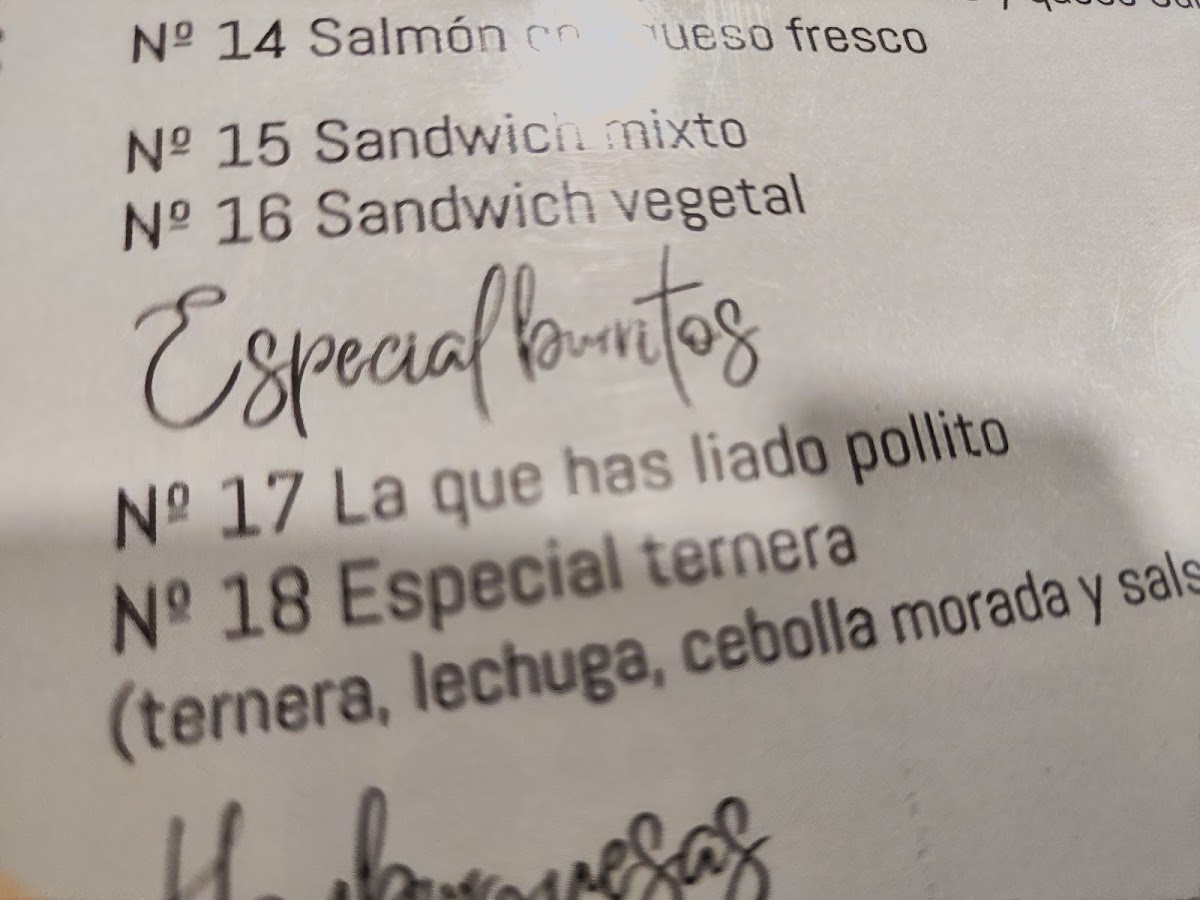 Nº 14 Salmón queso fresco
Nº 15 Sandwich mixto
Nº 16 Sandwich vegetal
Especial burritos
Nº 17 La que has liado pollito
Nº 18 Especial ternera
(ternera, lechuga, cebolla morada y sals